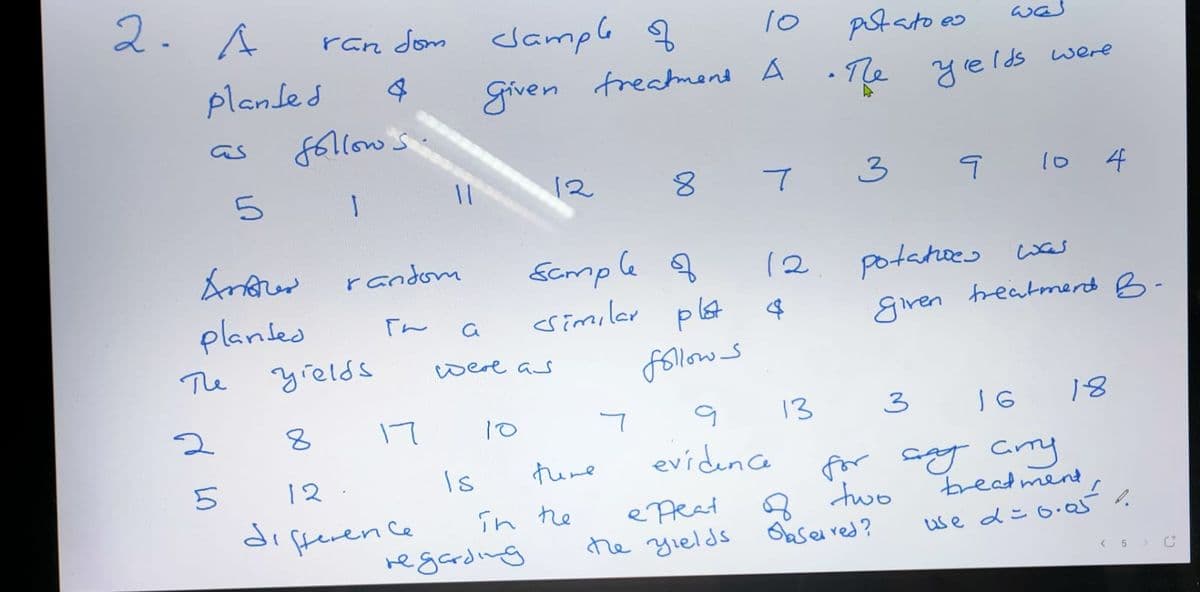 2. A random sample of 10 potatoes was
planted & given treatment A. The yields were
as follows.
5 1 11 12 8 7 3 9 10 4
Another random sample of 12 potatoes was
planted in a similar plot & given treatment B.
The yields were as follows
2 8 17 10 7 9 13 3 16 18
5 12. Is there evidence for any
difference in the effect of two treatment,
regarding the yields observed? use α = 0.05
< 5 >